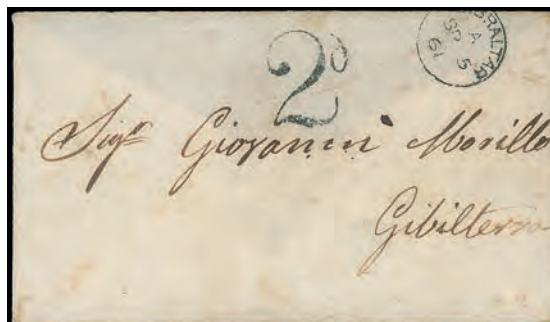 2d
GIBRALTAR
A
SP 5
61
Sigr Giovanni Morillo
Gibilterra